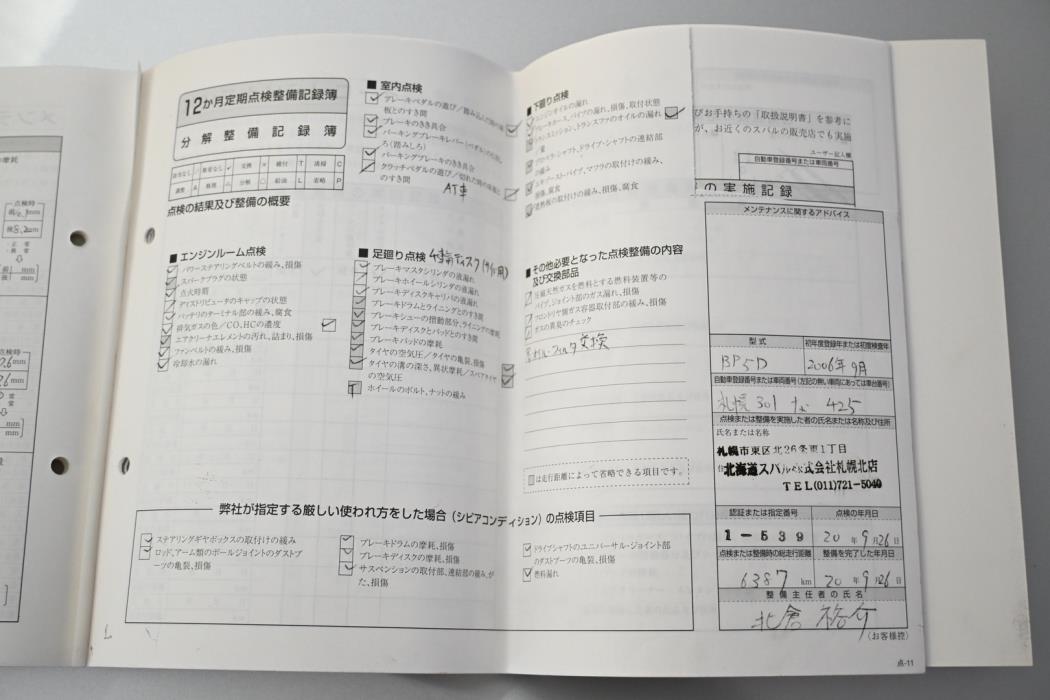 12か月定期点検整備記録簿
分解整備記録簿
点検の結果及び整備の概要
■ 室内点検
ブレーキペダルの遊び／踏み込んだ時の床
板とのすき間
ブレーキのきき具合
パーキングブレーキレバー(ペダル)の引きし
ろ(踏みしろ)
パーキングブレーキのきき具合
クラッチペダルの遊び／切れた時の床板と
のすき間
AT車
■ エンジンルーム点検
パワーステアリングベルトの緩み、損傷
スパークプラグの状態
点火時期
ディストリビュータのキャップの状態
バッテリのターミナル部の緩み、腐食
排気ガスの色／CO、HCの濃度
エアクリーナエレメントの汚れ、詰まり、損傷
ファンベルトの緩み、損傷
冷却水の漏れ
■ 足廻り点検
ブレーキマスタシリンダの液漏れ
ブレーキホイールシリンダの液漏れ
ブレーキディスクキャリパの液漏れ
ブレーキドラムとライニングとのすき間
ブレーキシューの摺動部分、ライニングの摩耗
ブレーキディスクとパッドとのすき間
ブレーキパッドの摩耗
タイヤの空気圧／タイヤの亀裂、損傷
タイヤの溝の深さ、異状摩耗／スペアタイヤ
の空気圧
ホイールのボルト、ナットの緩み
■ 下廻り点検
エンジンオイルの漏れ
ブレーキホース、パイプの漏れ、損傷、取付状態
トランスミッション、トランスファのオイルの漏れ
／量
プロペラ・シャフト、ドライブ・シャフトの連結部
の緩み
エキゾーストパイプ、マフラの取付けの緩み、
損傷、腐食
遮熱板の取付けの緩み、損傷、腐食
■ その他必要となった点検整備の内容
及び交換部品
圧縮天然ガスを燃料とする燃料装置等の
パイプ、ジョイント部のガス漏れ、損傷
ガスの異臭のチェック
は走行距離によって省略できる項目です。
びお手持ちの「取扱説明書」を参考に
が、お近くのスバルの販売店でも実施
ユーザー記入欄
自動車登録番号または車両番号
の実施記録
メンテナンスに関するアドバイス
型式
初年度登録年または初度検査年
BP5D
2006年9月
自動車登録番号または車両番号(左記の無い車両にあっては車台番号)
札幌 301 な 425
点検または整備を実施した者の氏名または名称及び住所
氏名または名称
札幌市東区北26条東1丁目
北海道スバル株式会社札幌北店
TEL(011)721-5040
認証または指定番号
点検の年月日
1-539
20年9月26日
点検または整備時の総走行距離
整備を完了した年月日
6387 km
20年9月26日
整備主任者の氏名
(お客様控)
点-11
弊社が指定する厳しい使われ方をした場合（シビアコンディション）の点検項目
ステアリングギヤボックスの取付けの緩み
ロッド、アーム類のボールジョイントのダストブ
ーツの亀裂、損傷
ブレーキドラムの摩耗、損傷
ブレーキディスクの摩耗、損傷
サスペンションの取付部、連結部の緩み、が
た、損傷
ドライブシャフトのユニバーサル・ジョイント部
のダストブーツの亀裂、損傷
燃料漏れ